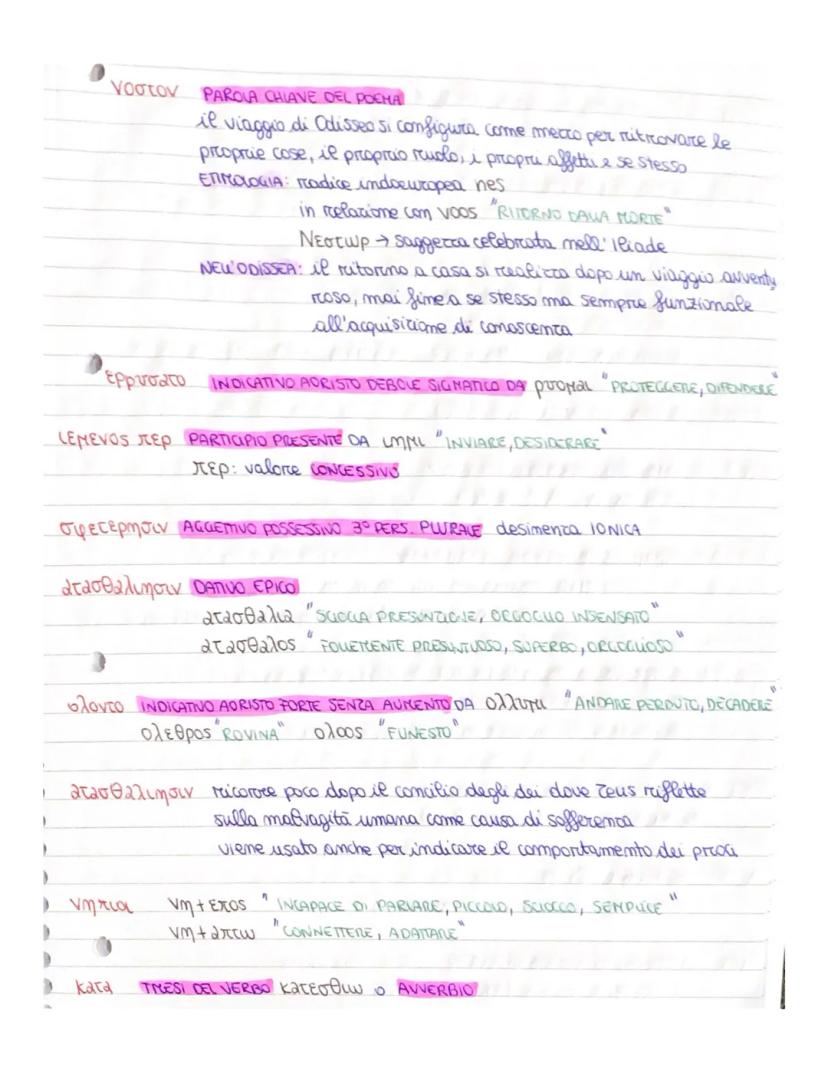 νοστον PAROLA CHIAVE DEL POEMA
il viaggio di Odisseo si configura come mezzo per ritrovare le
proprie cose, il proprio ruolo, i propri affetti e se stesso
ETIMOLOGIA: radice indoeuropea nes
in relazione con νοος "RITORNO DALLA MORTE"
Νεστωρ → saggezza celebrata nell'Iliade
NELL'ODISSEA: il ritorno a casa si realizza dopo un viaggio avventu
roso, mai fine a se stesso ma sempre funzionale
all'acquisizione di conoscenza
ερρυσατο INDICATIVO AORISTO DEBOLE SIGMATICO DA ρυομαι "PROTEGGERE, DIFENDERE"
ιεμενος περ PARTICIPIO PRESENTE DA ιημι "INVIARE, DESIDERARE"
περ: valore CONCESSIVO
σφετερησιν AGGETTIVO POSSESSIVO 3° PERS. PLURALE desinenza IONICA
ατασθαλιησιν DATIVO EPICO
ατασθαλια "SCIOCCA PRESUNZIONE, ORGOGLIO INSENSATO"
ατασθαλος "FOLLEMENTE PRESUNTUOSO, SUPERBO, ORGOGLIOSO"
ολοντο INDICATIVO AORISTO FORTE SENZA AUMENTO DA ολλυμι "ANDARE PERDUTO, DECADERE"
ολεθρος "ROVINA" ολοος "FUNESTO"
ατασθαλιησιν ricorre poco dopo il concilio degli dei dove Zeus riflette
sulla malvagità umana come causa di sofferenza
viene usato anche per indicare il comportamento dei proci
νηπιοι νη + επος "INCAPACE DI PARLARE, PICCOLO, SCIOCCO, SEMPLICE"
νη + απτω "CONNETTERE, ADATTARE"
κατα TMESI DEL VERBO κατεσθιω o AVVERBIO